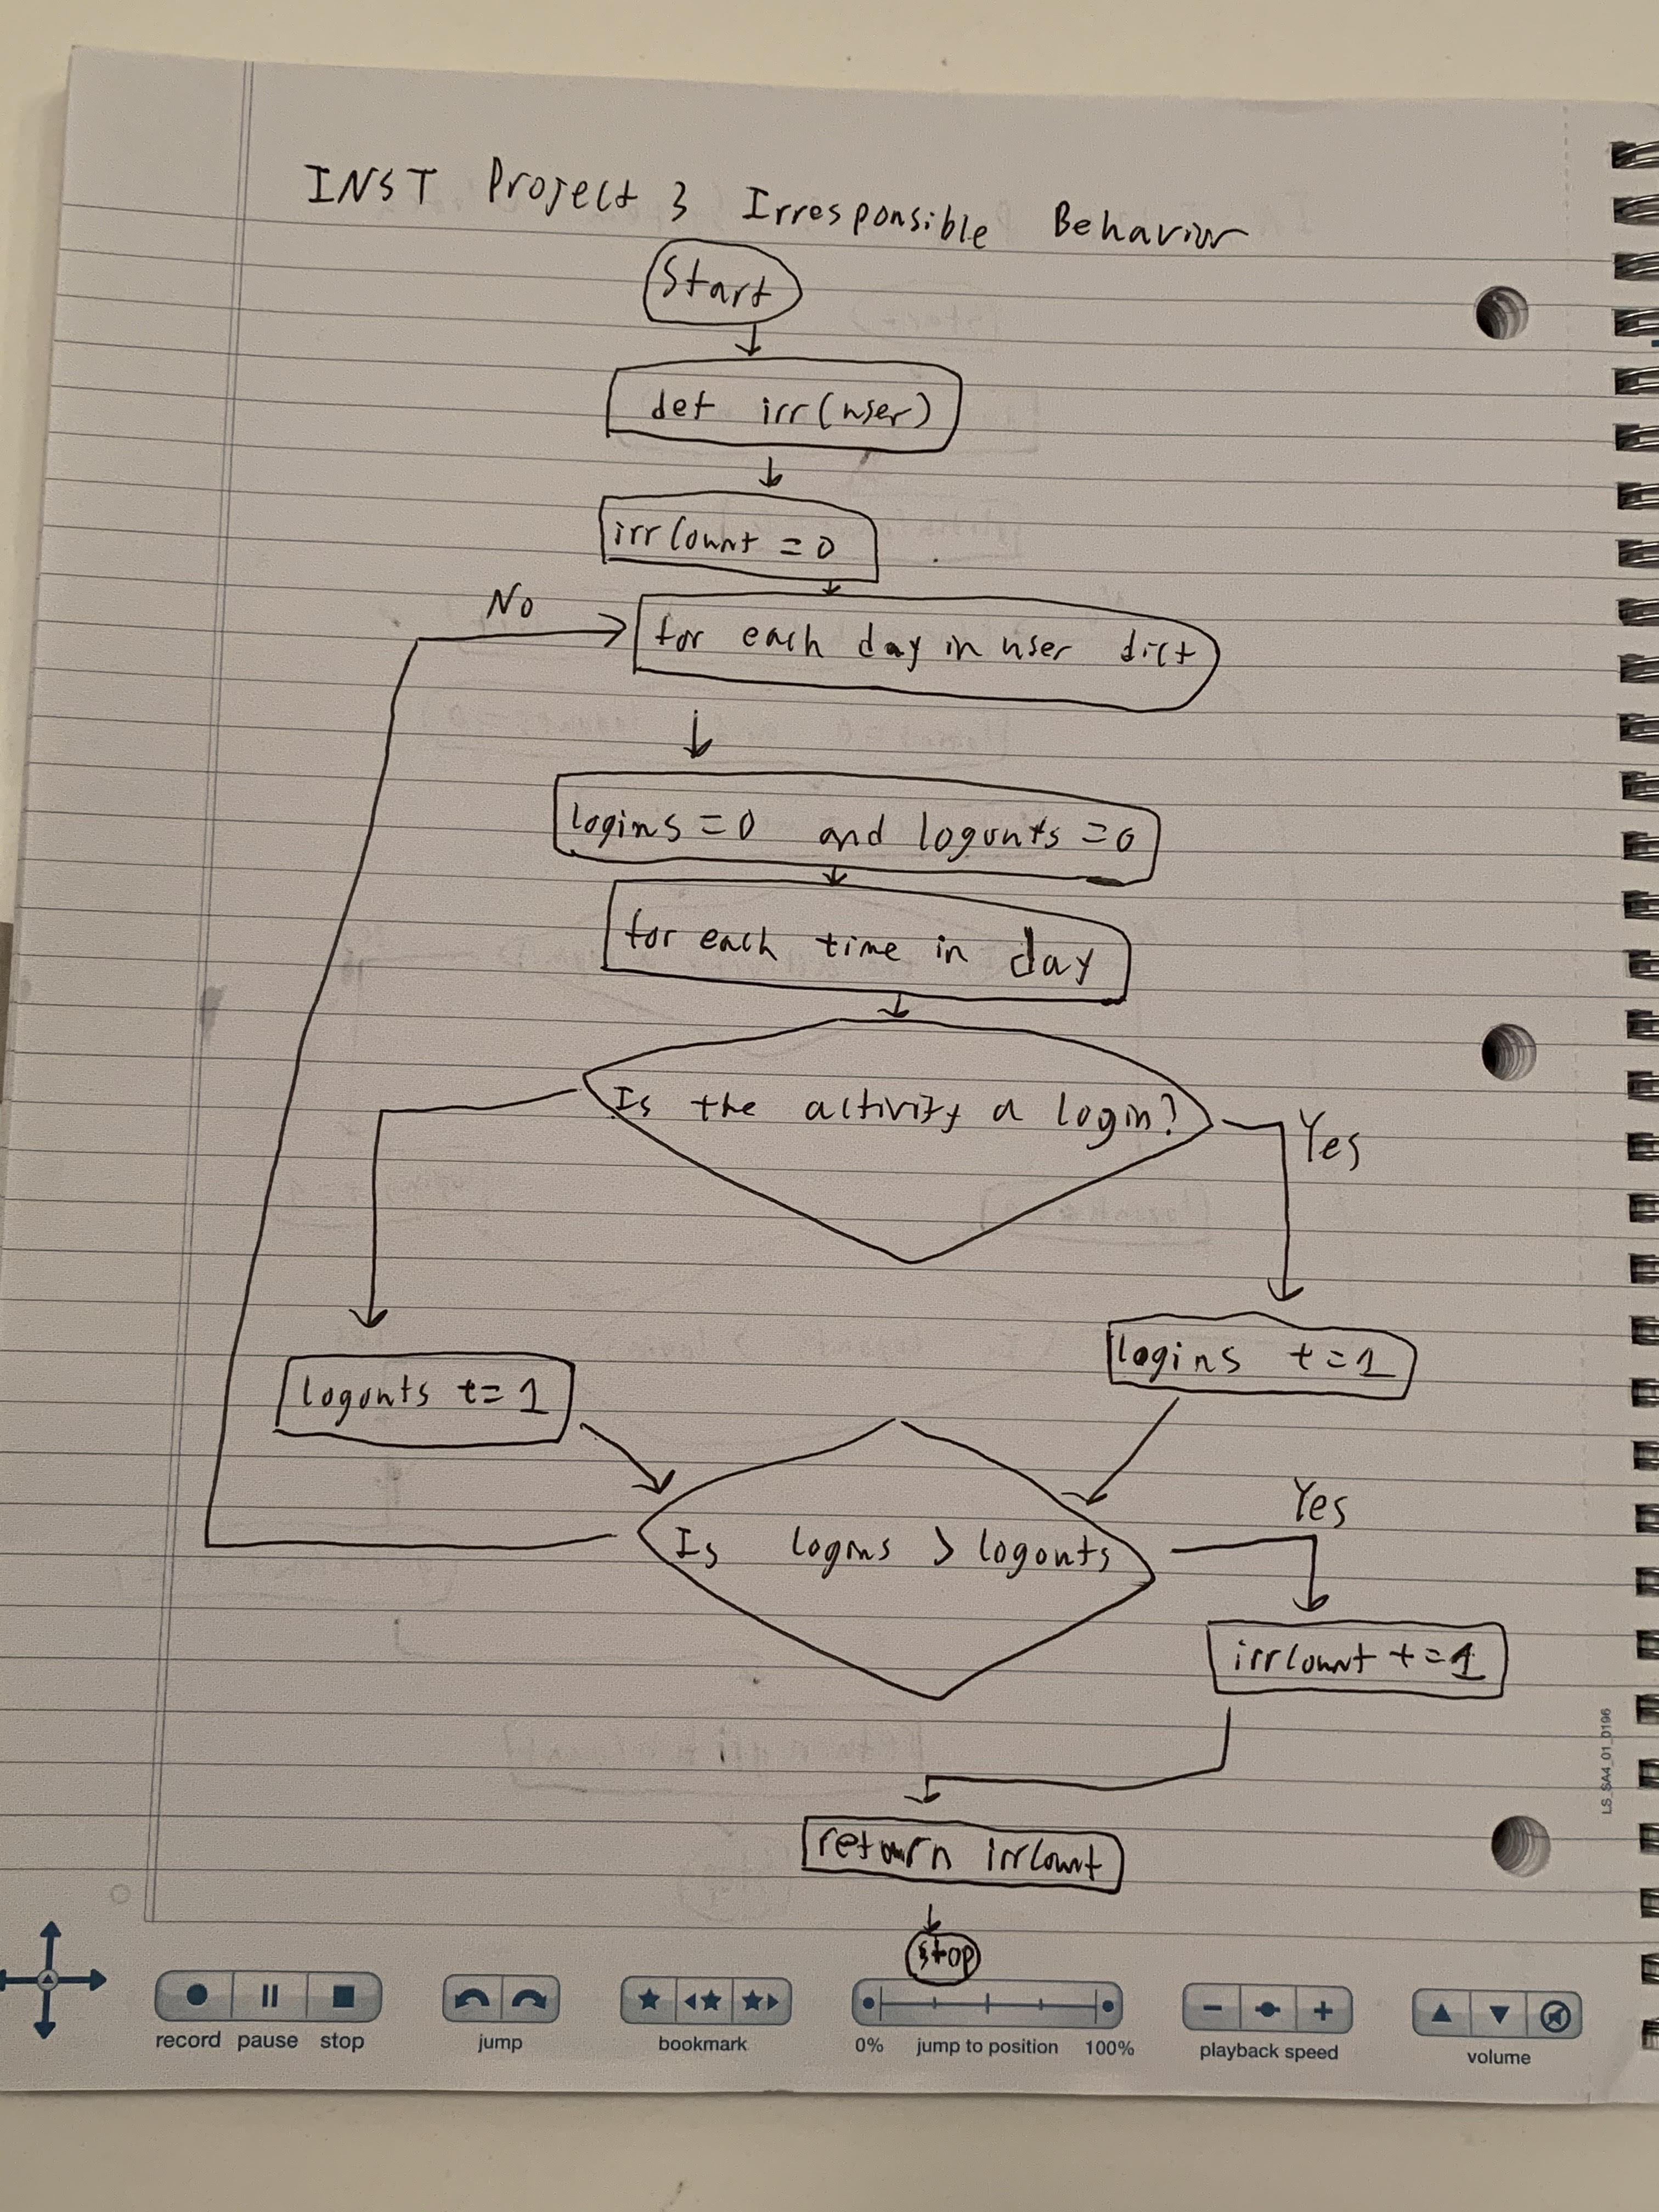 INST Project 3 Irresponsible Behavior
Start
def irr(user)
irrCount = 0
No
for each day in user dict
logins = 0 and logouts = 0
for each time in day
Is the activity a login?
Yes
logins += 1
logouts += 1
Yes
Is logins > logouts
irrCount += 1
return irrCount
stop
LS_SA4_01_0196
record pause stop
jump
bookmark
0% jump to position 100%
playback speed
volume